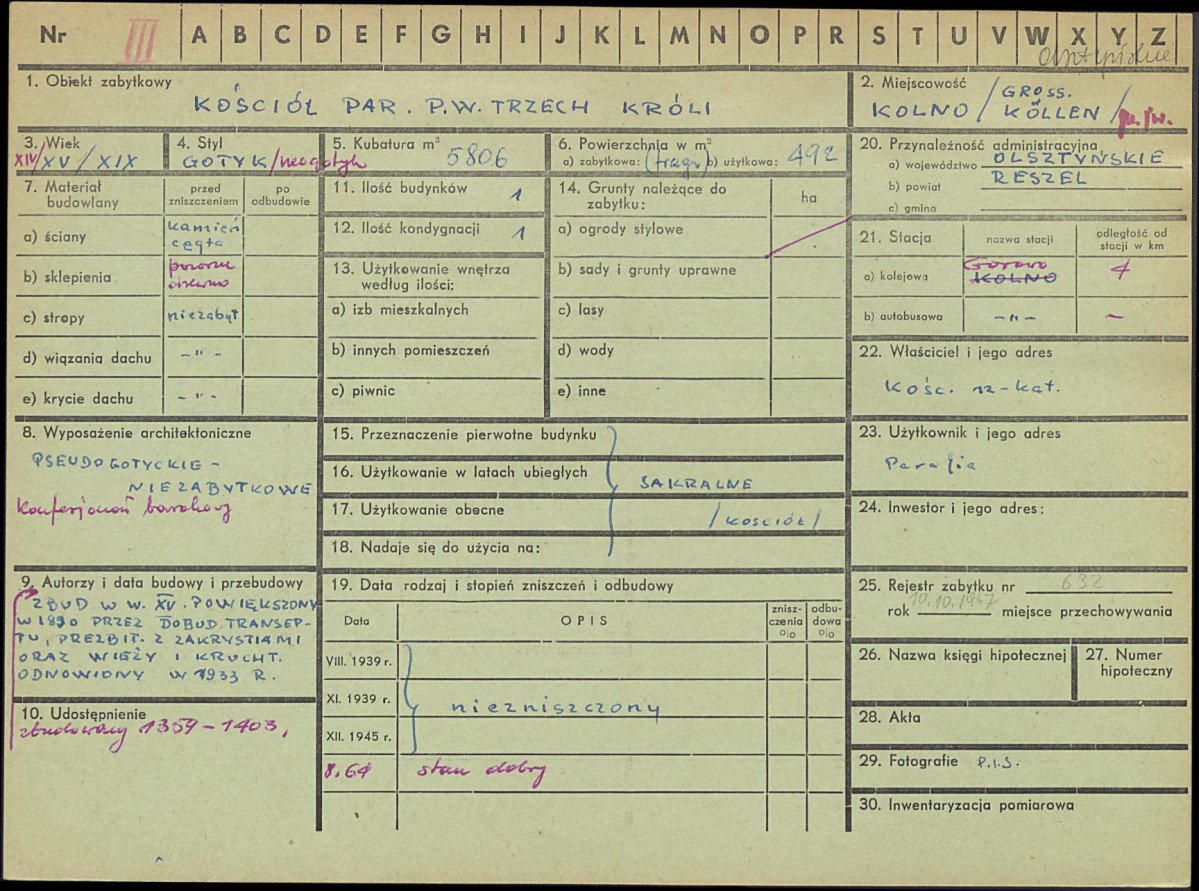 Nr III A B C D E F G H I J K L M N O P R S T U V W X Y Z
1. Obiekt zabytkowy
KOŚCIÓŁ PAR. P.W. TRZECH KRÓLI
2. Miejscowość
KOLNO / GROSS. KÖLLEN /
3. Wiek
XIV/XV/XIX
4. Styl
GOTYK/neogotyk
5. Kubatura m³ 5806
6. Powierzchnia w m²
a) zabytkowa: (fragm) b) użytkowa: 492
20. Przynależność administracyjna
a) województwo OLSZTYŃSKIE
b) powiat RESZEL
c) gmina
7. Materiał budowlany
przed zniszczeniem
po odbudowie
a) ściany kamień cegła
b) sklepienia pozorne drewno
c) stropy niezabyt
d) wiązania dachu - " -
e) krycie dachu - " -
11. Ilość budynków 1
12. Ilość kondygnacji 1
13. Użytkowanie wnętrza według ilości:
a) izb mieszkalnych
b) innych pomieszczeń
c) piwnic
14. Grunty należące do zabytku:
ha
a) ogrody stylowe
b) sady i grunty uprawne
c) lasy
d) wody
e) inne
21. Stacja
nazwa stacji
odległość od stacji w km
a) kolejowa Gorowo KOLNO 4
b) autobusowa - " - -
22. Właściciel i jego adres
Kośc. rz-kat.
8. Wyposażenie architektoniczne
PSEUDOGOTYCKIE -
NIEZABYTKOWE
Konfesjonał barokowy
15. Przeznaczenie pierwotne budynku
16. Użytkowanie w latach ubiegłych
SAKRALNE
17. Użytkowanie obecne
/KOŚCIÓŁ/
18. Nadaje się do użycia na:
23. Użytkownik i jego adres
Parafia
24. Inwestor i jego adres:
9. Autorzy i data budowy i przebudowy
ZBUD. W W. XV. POWIĘKSZONY
W 1890 PRZEZ DOBUD. TRANSEP-
TU, PREZBIT. Z ZAKRYSTIAMI
ORAZ WIEŻY I KRUCHT.
ODNOWIONY W 1933 R.
10. Udostępnienie
zbudowany 1359-1403,
19. Data rodzaj i stopień zniszczeń i odbudowy
Data
OPIS
znisz-
czenia
%
odbu-
dowa
%
VIII. 1939 r.
XI. 1939 r.
niezniszczony
XII. 1945 r.
8.64 stan dobry
25. Rejestr zabytku nr 632
rok 10.10.1967 miejsce przechowywania
26. Nazwa księgi hipotecznej
27. Numer hipoteczny
28. Akta
29. Fotografie P.I.S.
30. Inwentaryzacja pomiarowa